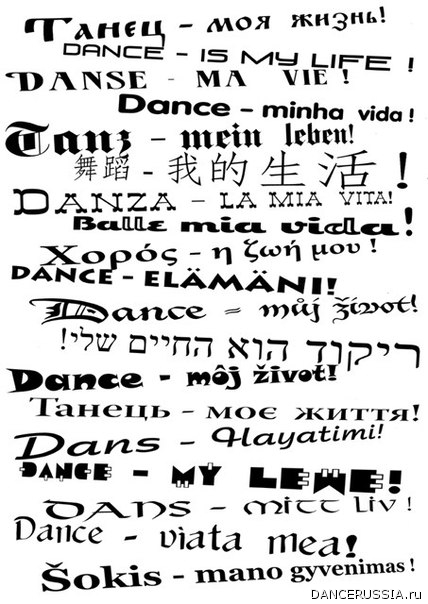 Танец - моя жизнь!
DANCE - IS MY LIFE !
DANSE - MA VIE !
Dance - minha vida !
Tanz - mein leben!
舞蹈 - 我的生活!
DANZA - LA MIA VITA!
Baile mia vida!
Χορός - η ζωή μου !
DANCE - ELÄMÄNI!
Dance = můj život!
ריקוד הוא החיים שלי!
Dance - môj život!
Танець - моє життя!
Dans - Hayatimi!
DANCE - MY LEWE!
DANS - MITT LIV !
Dance - viata mea!
Šokis - mano gyvenimas !
DANCERUSSIA.ru